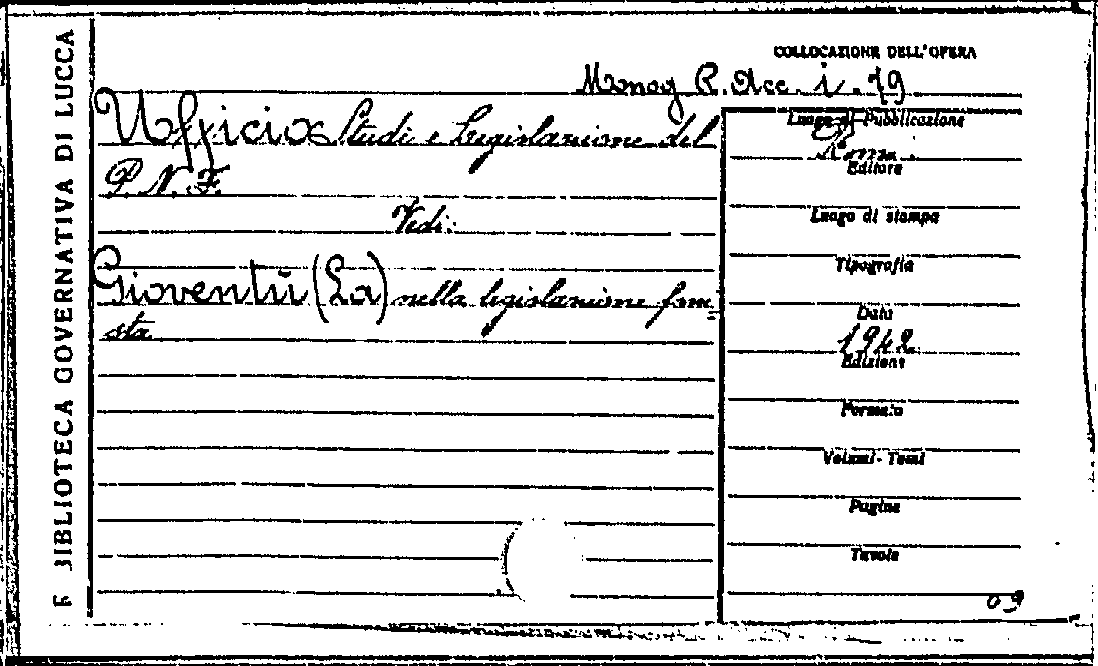 F BIBLIOTECA GOVERNATIVA DI LUCCA
COLLOCAZIONE DELL'OPERA
Monog R. Acc. i. 19
Ufficio Studi e Legislazione del
P. N. F.
Vedi:
Gioventù (La) nella legislazione fasci=
sta
Luogo di Pubblicazione
Roma
Editore
Luogo di stampa
Tipografia
Data
1942
Edizione
Formato
Volumi - Tomi
Pagine
Tavole
09